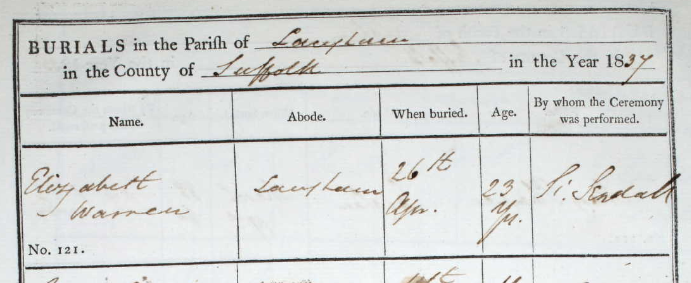 BURIALS in the Parish of Langham
in the County of Suffolk in the Year 1837
Name. Abode. When buried. Age. By whom the Ceremony was performed.
Elizabeth Warren Langham 26th Apr. 23 Yr. Kendall
No. 121.